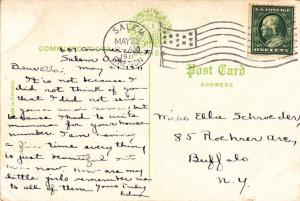 SALEM
MAY 22
1911
U.S. POSTAGE
ONE CENT
COMMERCIAL
Salem
May 21, 1911
Post Card
ADDRESS
Dear Ella:
It is not because I
did not think of you
that I did not
but
because I had to write
for your house
number. I am having
a fine time every thing
is just beautiful out
here now. How are my
little girls remember me
to all of them. Yours Truly
Edna
Miss Ella Schroeder
85 Roehrer Ave,
Buffalo
N.Y.